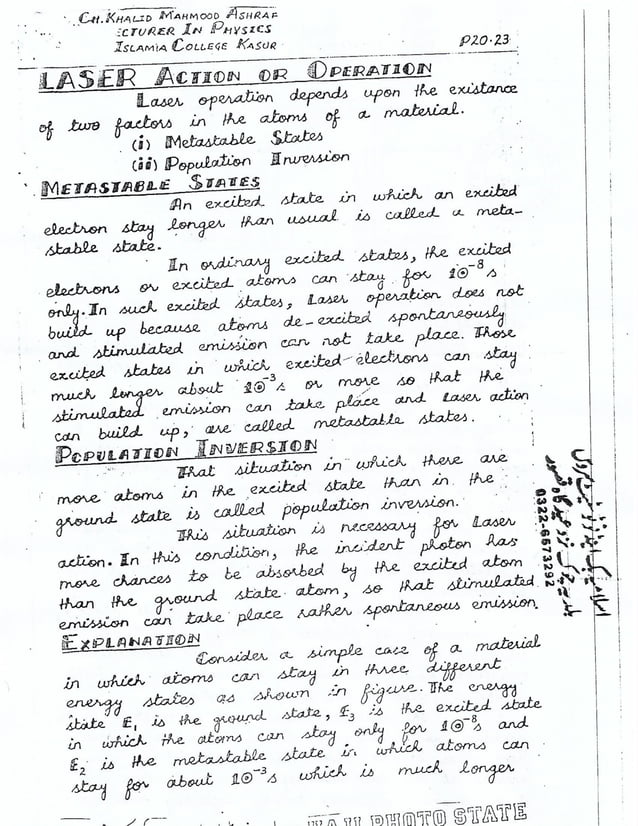 CH. KHALID MAHMOOD ASHRAF
ECTURER IN PHYSICS
ISLAMIA COLLEGE KASUR
P20.23
LASER ACTION OR OPERATION
Laser operation depends upon the existance
of two factors in the atoms of a material.
(i) Metastable States
(ii) Population Inversion
METASTABLE STATES
An excited state in which an excited
electron stay longer than usual is called a meta-
stable state.
In ordinary excited states, the excited
electrons or excited atoms can stay for 10⁻⁸ s
only. In such excited states, Laser operation does not
build up because atoms de-excited spontaneously
and stimulated emission can not take place. Those
excited states in which excited electrons can stay
much longer about 10⁻³ s or more so that the
stimulated emission can take place and Laser action
can build up, are called metastable states.
POPULATION INVERSION
That situation in which there are
more atoms in the excited state than in the
ground state is called population inversion.
This situation is necessary for Laser
action. In this condition, the incident photon has
more chances to be absorbed by the excited atom
than the ground state atom, so that stimulated
emission can take place rather spontaneous emission.
EXPLANATION
Consider a simple case of a material
in which atoms can stay in three different
energy states as shown in figure. The energy
state E₁ is the ground state, E₃ is the excited state
in which the atoms can stay only for 10⁻⁸ s and
E₂ is the metastable state in which atoms can
stay for about 10⁻³ s which is much longer
0322-6573292
PHOTO STATE